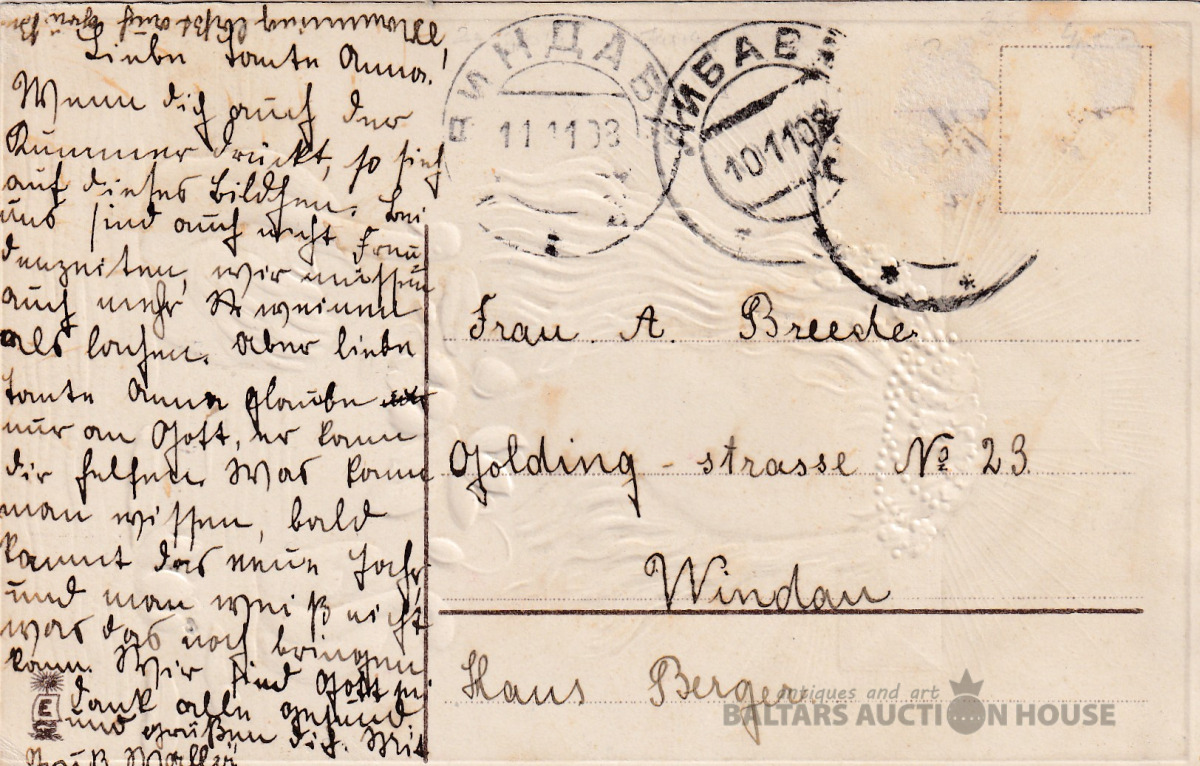 Liebe Tante Anna.
Wenn dich auch der
Kummer drückt, so sieh
auf dieses Bildchen. Bei
uns sind auch nicht Freu
denzeiten, wir müssen
auch mehr weinen
als lachen. Aber liebe
Tante Anna glaube
nur an Gott, er kann
dir helfen. Was kann
man wissen, bald
kommt das neue Jahr
und man weiß nicht
was das noch bringen
kann. Wir sind Gott sei
Dank alle gesund
und grüßen dich. Mit
Gruß
ВИНДАВА
11 11 08
ЛИБАВА
10 11 08
Frau. A. Breede
Golding-strasse № 23
Windau
Haus Berger
E
antiques and art
BALTARS AUCTION HOUSE